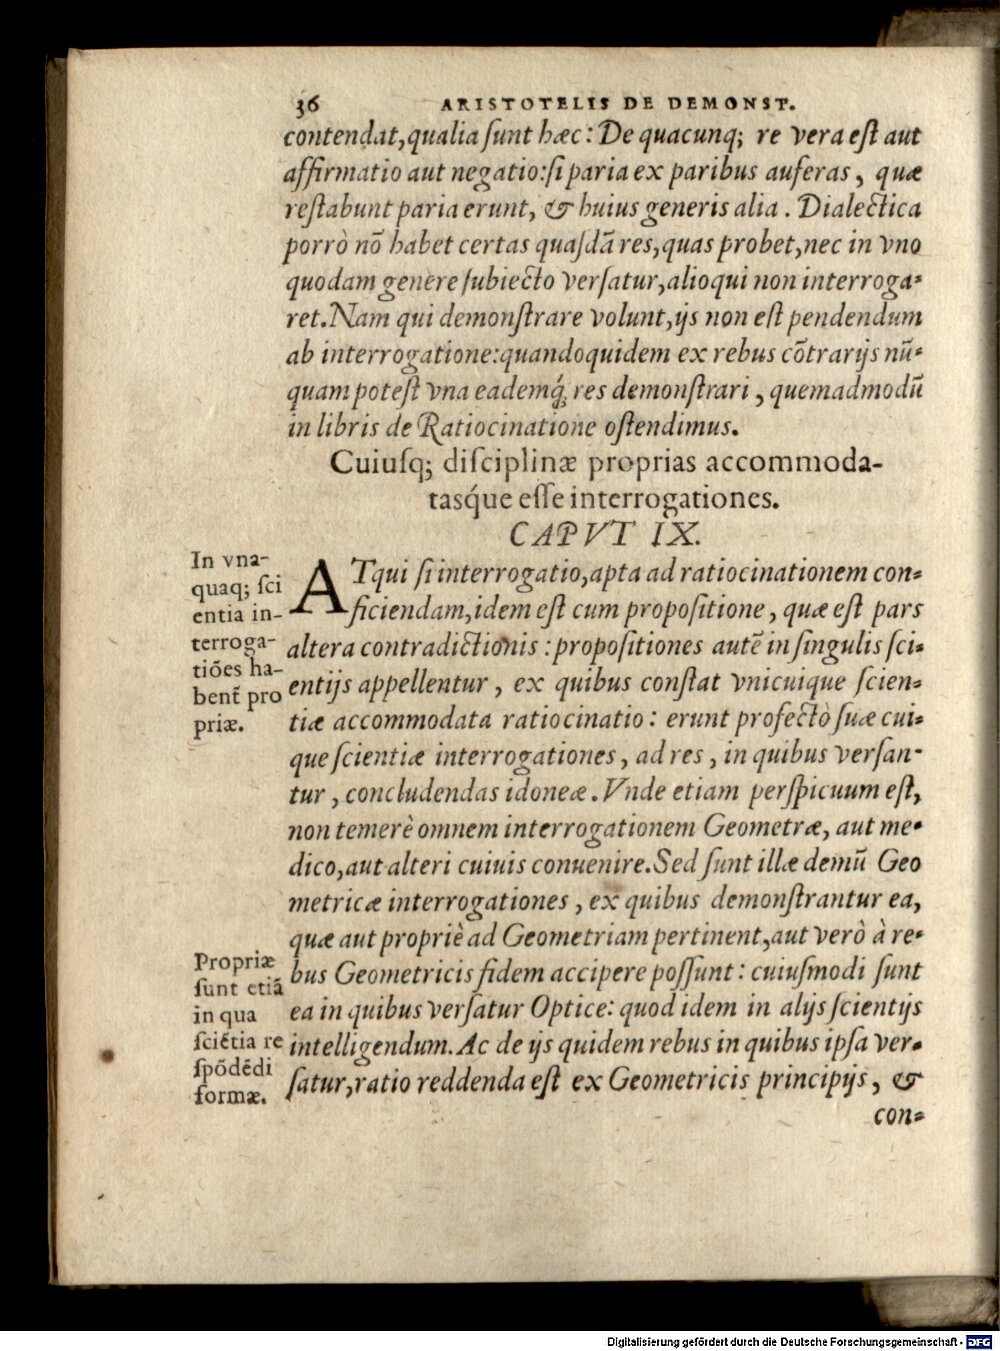 36 ARISTOTELIS DE DEMONST.
contendat, qualia ſunt hæc: De quacunq; re vera eſt aut
affirmatio aut negatio: ſi paria ex paribus auferas, quæ
reſtabunt paria erunt, & huius generis alia. Dialectica
porrò nō habet certas quaſdā res, quas probet, nec in vno
quodam genere ſubiecto verſatur, alioqui non interroga-
ret. Nam qui demonſtrare volunt, ijs non eſt pendendum
ab interrogatione: quandoquidem ex rebus cōtrarijs nū-
quam poteſt vna eademq́; res demonſtrari, quemadmodū
in libris de Ratiocinatione oſtendimus.
Cuiuſq; diſciplinæ proprias accommoda-
tasq́ue eſſe interrogationes.
CAPVT IX.
In vna-
quaq; ſci
entia in-
terroga-
tiōes ha-
bent̄ pro
priæ.
ATqui ſi interrogatio, apta ad ratiocinationem con-
ficiendam, idem eſt cum propoſitione, quæ eſt pars
altera contradictionis: propoſitiones autē in ſingulis ſci-
entijs appellentur, ex quibus conſtat vnicuique ſcien-
tiæ accommodata ratiocinatio: erunt profectò ſuæ cui-
que ſcientiæ interrogationes, ad res, in quibus verſan-
tur, concludendas idoneæ. Vnde etiam perſpicuum eſt,
non temerè omnem interrogationem Geometræ, aut me-
dico, aut alteri cuiuis conuenire. Sed ſunt illæ demū Geo
metricæ interrogationes, ex quibus demonſtrantur ea,
quæ aut propriè ad Geometriam pertinent, aut verò à re-
bus Geometricis fidem accipere poſſunt: cuiuſmodi ſunt
ea in quibus verſatur Optice: quod idem in alijs ſcientijs
intelligendum. Ac de ijs quidem rebus in quibus ipſa ver-
ſatur, ratio reddenda eſt ex Geometricis principijs, &
Propriæ
ſunt etiā
in qua
ſciētia re
ſpōdēdi
formæ.
con-
Digitalisierung gefördert durch die Deutsche Forschungsgemeinschaft - DFG